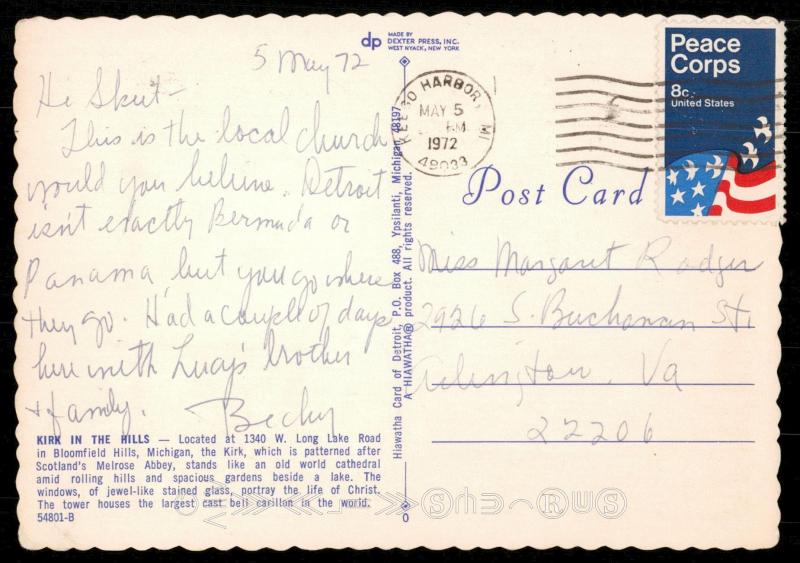 dp MADE BY
DEXTER PRESS, INC.
WEST NYACK, NEW YORK
5 May 72
Hi Skeet -
This is the local church
would you believe. Detroit
isn't exactly Bermuda or
Panama, but you go where
they go. Had a couple of days
here with Lucy's brother
& family.
Becky
KIRK IN THE HILLS — Located at 1340 W. Long Lake Road
in Bloomfield Hills, Michigan, the Kirk, which is patterned after
Scotland's Melrose Abbey, stands like an old world cathedral
amid rolling hills and spacious gardens beside a lake. The
windows, of jewel-like stained glass, portray the life of Christ.
The tower houses the largest cast bell carillon in the world.
54801-B
Hiawatha Card of Detroit, P.O. Box 488, Ypsilanti, Michigan 48197
A HIAWATHA® product. All rights reserved.
0
HARBOR, MI
MAY 5
PM
1972
49033
Peace
Corps
8c
United States
Post Card
Miss Margaret Rodger
2926 S. Buchanan St.
Arlington, Va
22206